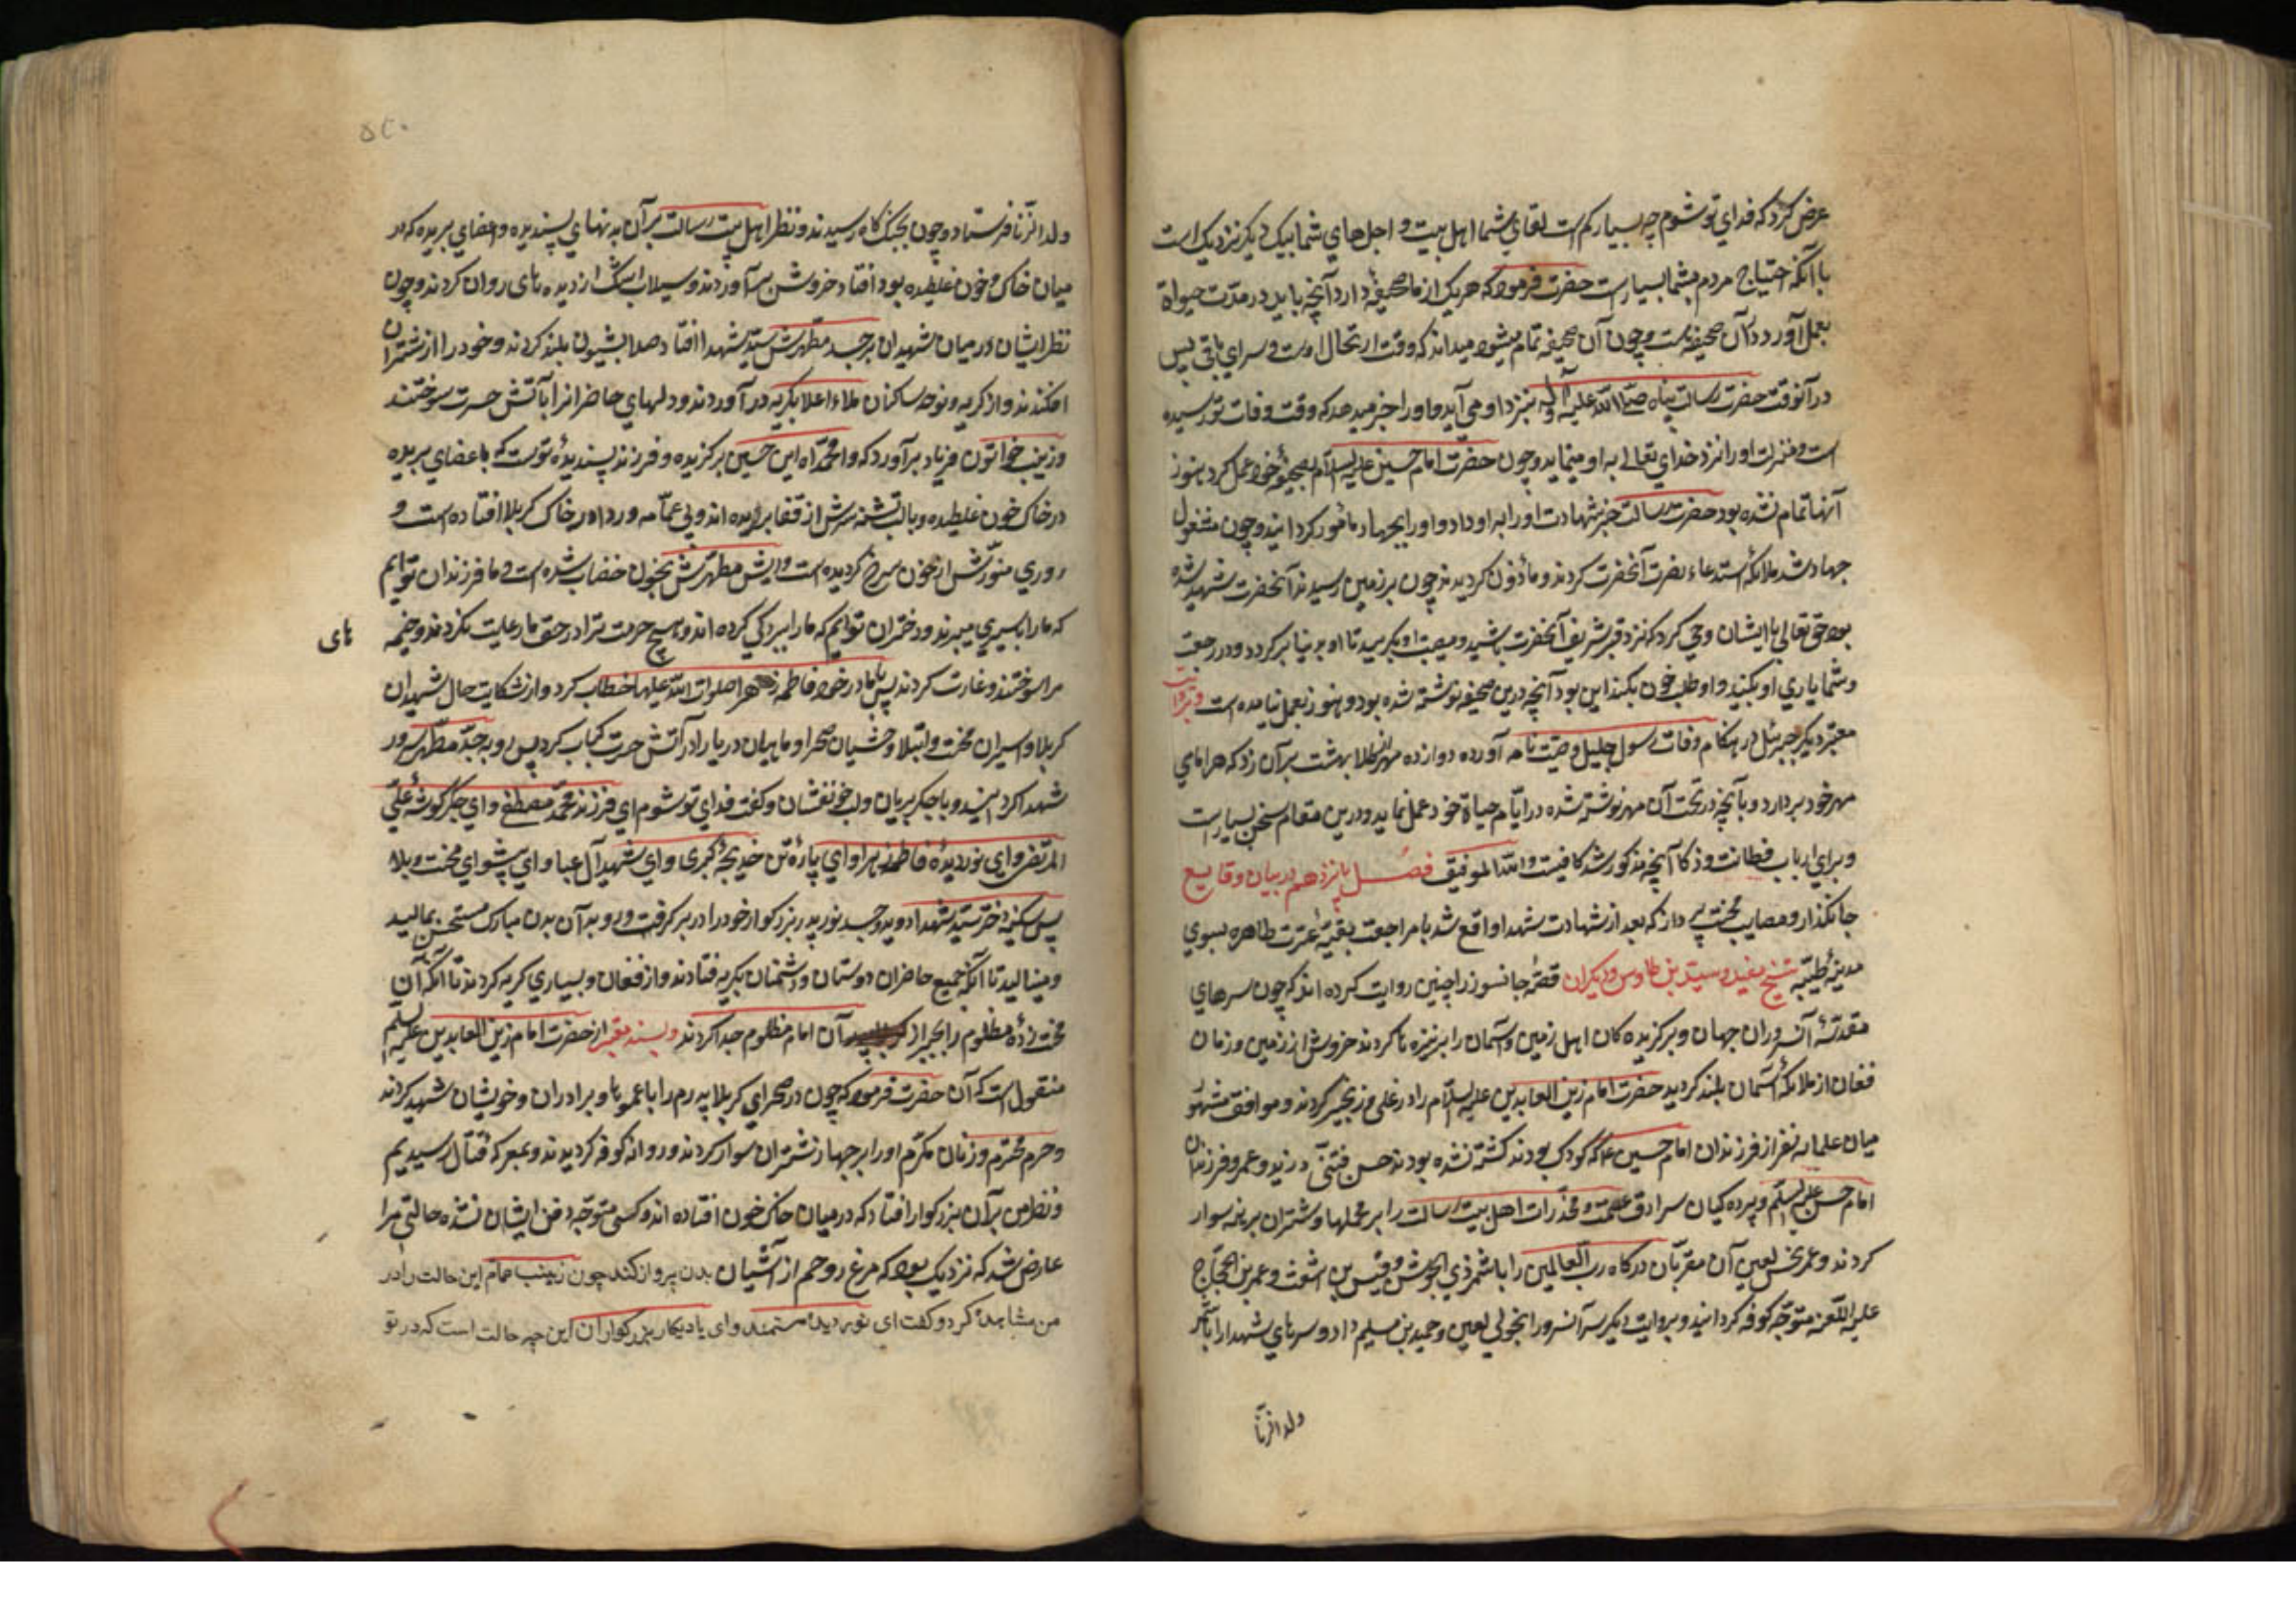 عرض کرد که فدای تو شوم چه بسیار کم است لقای شما اهل بیت و اجلهای شما بیک دیگر نزدیک است
با آنکه احتیاج مردم بشما بسیار است حضرت فرمود که هر یک از ما صحیفهٔ دارد آنچه باید در مدّت حیوة
بعمل آورد در آن صحیفه است و چون آن صحیفه تمام میشود میداند که وقت ارتحال اوست و سرای باقی پس
در آنوقت حضرت رسالت پناه صلّی اللّه علیه وآله بنزد او می آید و او را خبر میدهد که وقت وفات تو رسیده
است و منزلت او را نزد خدای تعالی به او مینماید و چون حضرت امام حسین علیه السلام بصحیفهٔ خود عمل کرد هنوز
آنها تمام نشده بود حضرت رسالت خبر شهادت او را به او داد و او را بجهاد مأمور گردانید و چون مشغول
جهاد شد ملائکه استدعاء نصرت آنحضرت کردند و مأذون گردیدند چون بر زمین رسیدند آنحضرت شهید شده
بود حق تعالی با ایشان وحی کرد که نزد قبر شریف آنحضرت باشید و بر مصیبت او بگریید تا او بدنیا برگردد و در رجعت
و شما یاری او بکنید و او طلب خون بکند این بود آنچه درین صحیفه نوشته شده بود و هنوز بعمل نیامده است و بروایت
معتبر دیگر جبرئیل در هنگام وفات رسول جلیل وصیّت نامه آورده دوازده مهر از طلا بهشت بر آن زد که هر امامی
مهر خود بردارد و بآنچه در تحت آن مهر نوشته شده در ایّام حیاة خود عمل نماید و درین مقام سخن بسیار است
و برای ارباب فطانت و ذکا آنچه مذکور شد کافیست واللّه الموفق فصل پانزدهم در بیان وقایع
جانگداز و مصایب محنت پرداز که بعد از شهادت شهدا واقع شد با مراجعت بقیّهٔ عترت طاهره بسوی
مدینهٔ طیّبه شیخ مفید و سیّد بن طاوس و دیگران قصّهٔ جانسوز را چنین روایت کرده اند که چون سرهای
مقدّسهٔ آن سروران جهان و برگزیده گان اهل زمین و آسمان را بر نیزه ها کردند خروش از زمین و زمان
فغان از ملائکهٔ آسمان بلند گردید حضرت امام زین العابدین علیه السلام را در غل و زنجیر کردند و موافق مشهور
میان علما سه نفر از فرزندان امام حسین ع که کودک بودند کشته نشده بودند حسن مثنّی و زید و عمرو فرزندان
امام حسن علیه السلم و پرده گیان سرادق عصمت و مخدّرات اهل بیت رسالت را بر محملها و شتران برهنه سوار
کردند و عمر نحس لعین آن مقربان درگاه رب العالمین را با شمر ذی الجوشن و قیس بن اشعث و عمر بن الحجّاج
علیه اللّعنه متوجّه کوفه گردانید و بروایت دیگر سر آنسرور را بخولی لعین و حمید بن مسلم داد و سرهای شهدا را با شمر
ولد الزنا
ولد الزّنا فرستاد و چون بجنگ گاه رسیدند و نظر اهل بیت رسالت بر آن بدنهای پسندیده و اعضای بریده که در
میان خاک و خون غلطیده بود افتاد خروش بر آوردند و سیلاب اشک از دیده های روان کردند و چون
نظر ایشان در میان شهیدان بر جسد مطهّرش سیّد شهدا افتاد صدا بشیون بلند کردند و خود را از شتران
افکندند و از گریه و نوحه ساکنان ملاء اعلا بگریه در آوردند و دلهای حاضرانرا بآتش حسرت سوختند
و زینب خواتون فریاد برآورد که وامحمّداه این حسین برگزیده و فرزند پسندیدهٔ توست که با عضای بریده
در خاک خون غلطیده و با لب تشنه سرش از قفا بریده اند و بی عمّامه و ردا در خاک کربلا افتاده است و
روی منوّرش از خون سرخ گردیده است و ریش مطهرش بخون خضاب شده است و ما فرزندان توایم
که ما را باسیری میبرند و دختران توایم که ما را ببردگی کرده اند و هیچ حرمت ترا در حق ما رعایت نکردند و خیمه
های
مرا سوختند و غارت کردند پس با مادر خود فاطمه زهرا صلوات اللّه علیها خطاب کرد و از شکایت حال شهیدان
کربلا و اسیران محنت و ابتلا وحشیان صحرا و ماهیان دریا را در آتش حسرت کباب کرد پس رو به جسد مطهّر سرور
شهدا گردانید و با جگر بریان و لب خونفشان و گفت فدای تو شوم ای فرزند محمّد مصطفی و ای جگرگوشهٔ علی
المرتضی و ای نور دیدهٔ فاطمه زهرا و ای پارهٔ تن خدیجهٔ کبری و ای شهید آل عبا و ای پیشوای محنت و بلا
پس سکینه دختر سیّد شهدا دوید و جسد نور پدر بزرگوار خود را در بر گرفت و رو به آن بدن مبارک مستحسن بمالید
و مینالید تا آنکه جمیع حاضران دوستان و دشمنان بگریه فتادند و از فغان و بسیاری گریه کردند تا آنکه آن
محنت زدهٔ مظلوم را بجبر از آن امام مظلوم جدا کردند و بسند معتبر از حضرت امام زین العابدین علیه السلم
منقول است که آن حضرت فرمود که چون در صحرای کربلا پدرم را با عموها و برادران و خویشان شهید کردند
و حرم محترم و زنان مکرّم او را بر جهاز شتران سوار کردند و روانه کوفه گردیدند و بمعرکه قتال رسیدیم
و نظر من بر آن بزرگوار افتاد که در میان خاک خون افتاده اند و کسی متوجّه دفن ایشان نشده حالتی مرا
عارض شد که نزدیک بود که مرغ روحم از آشیان بدن پرواز کند چون زینب عمّام این حالت را در
من مشاهده کرد و گفت ای نور دیدهٔ مستمند و ای یادگار بزرگواران این چه حالت است که در تو